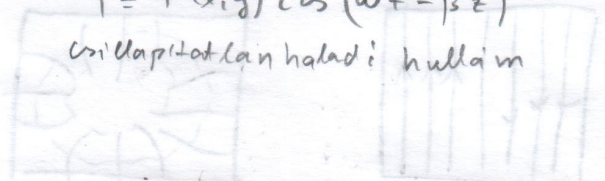 (x,y) cos (ωt - βz)
csillapítatlan haladó hullám